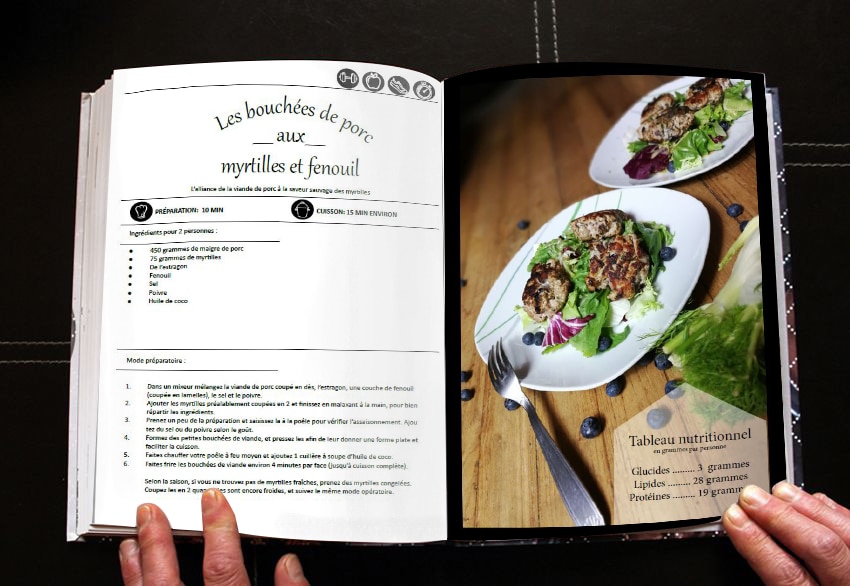 Les bouchées de porc
aux
myrtilles et fenouil
L'alliance de la viande de porc à la saveur sauvage des myrtilles
PRÉPARATION: 10 MIN
CUISSON: 15 MIN ENVIRON
Ingrédients pour 2 personnes :
• 450 grammes de maigre de porc
• 75 grammes de myrtilles
• De l'estragon
• Fenouil
• Sel
• Poivre
• Huile de coco
Mode préparatoire :
1. Dans un mixeur mélangez la viande de porc coupé en dés, l'estragon, une couche de fenouil
(coupée en lamelles), le sel et le poivre.
2. Ajouter les myrtilles préalablement coupées en 2 et finissez en malaxant à la main, pour bien
répartir les ingrédients.
3. Prenez un peu de la préparation et saisissez la à la poêle pour vérifier l'assaisonnement. Ajou
tez du sel ou du poivre selon le goût.
4. Formez des petites bouchées de viande, et pressez les afin de leur donner une forme plate et
faciliter la cuisson.
5. Faites chauffer votre poêle à feu moyen et ajoutez 1 cuillère à soupe d'huile de coco.
6. Faites frire les bouchées de viande environ 4 minutes par face (jusqu'à cuisson complète).
Selon la saison, si vous ne trouvez pas de myrtilles fraîches, prenez des myrtilles congelées.
Coupez les en 2 sont encore froides, et suivez le même mode opératoire.
Tableau nutritionnel
en grammes par personne
Glucides ......... 3 grammes
Lipides ......... 28 grammes
Protéines ......... 19 gramm